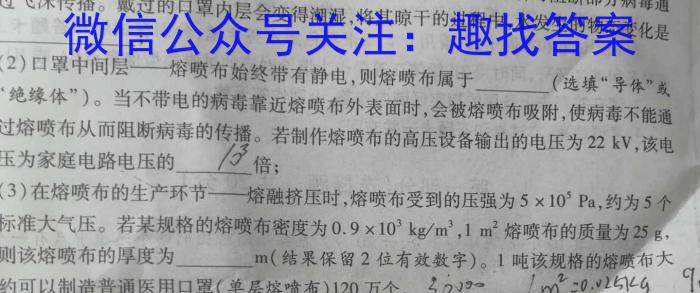 飞沫传播。戴过的口罩内层会变得潮湿,将其晾干的过程中,水发生的物态变化是
微信公众号关注：趣找答案
(2)口罩中间层——熔喷布始终带有静电,则熔喷布属于________(选填“导体”或
“绝缘体”)。当不带电的病毒靠近熔喷布外表面时,会被熔喷布吸附,使病毒不能通
过熔喷布从而阻断病毒的传播。若制作熔喷布的高压设备输出的电压为 22 kV,该电
压为家庭电路电压的 13 倍;
(3)在熔喷布的生产环节——熔融挤压时,熔喷布受到的压强为 5×10⁵ Pa,约为 5 个
标准大气压。若某规格的熔喷布密度为 0.9×10³ kg/m³,1 m² 熔喷布的质量为 25 g,
则该熔喷布的厚度为________m(结果保留 2 位有效数字)。1 吨该规格的熔喷布大
约可以制造普通医用口罩(单层熔喷布)120 万个。 1m²=0.025kg